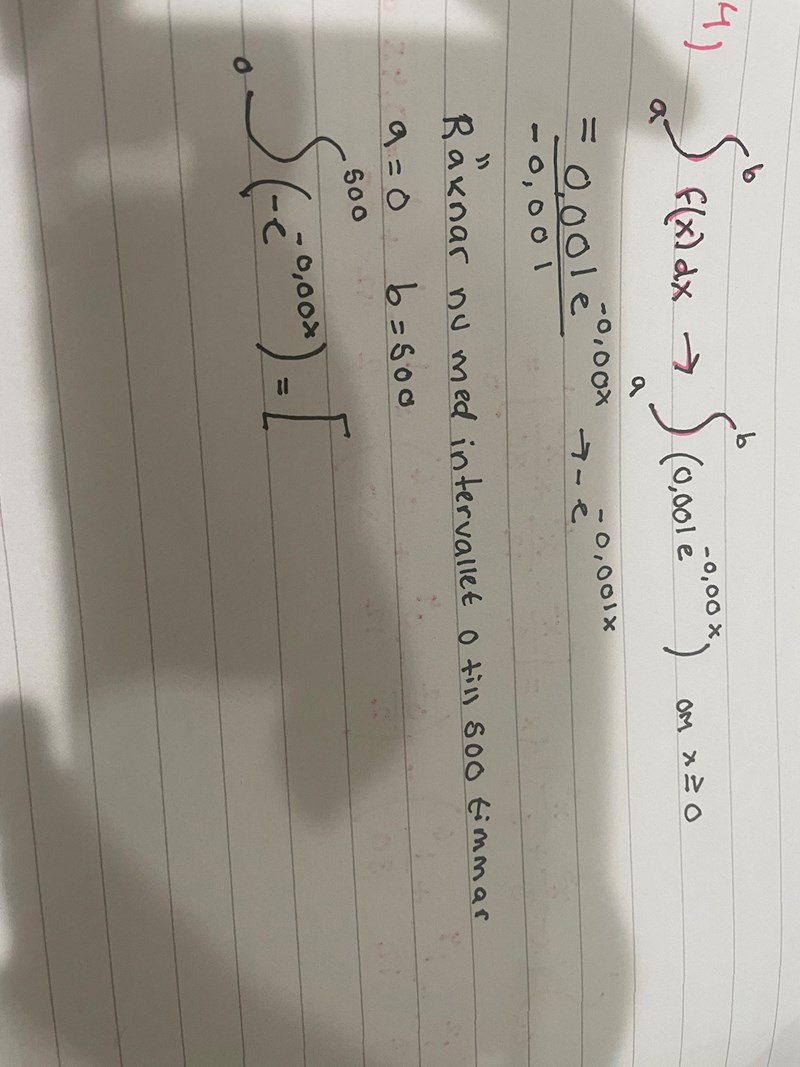 4) a∫b f(x)dx → a∫b (0,001e^-0,00x) om x≥0
= 0,001e^-0,00x / -0,001 → -e^-0,001x
Räknar nu med intervallet 0 till 500 timmar
a=0 b=500
0∫500 (-e^-0,00x) = [